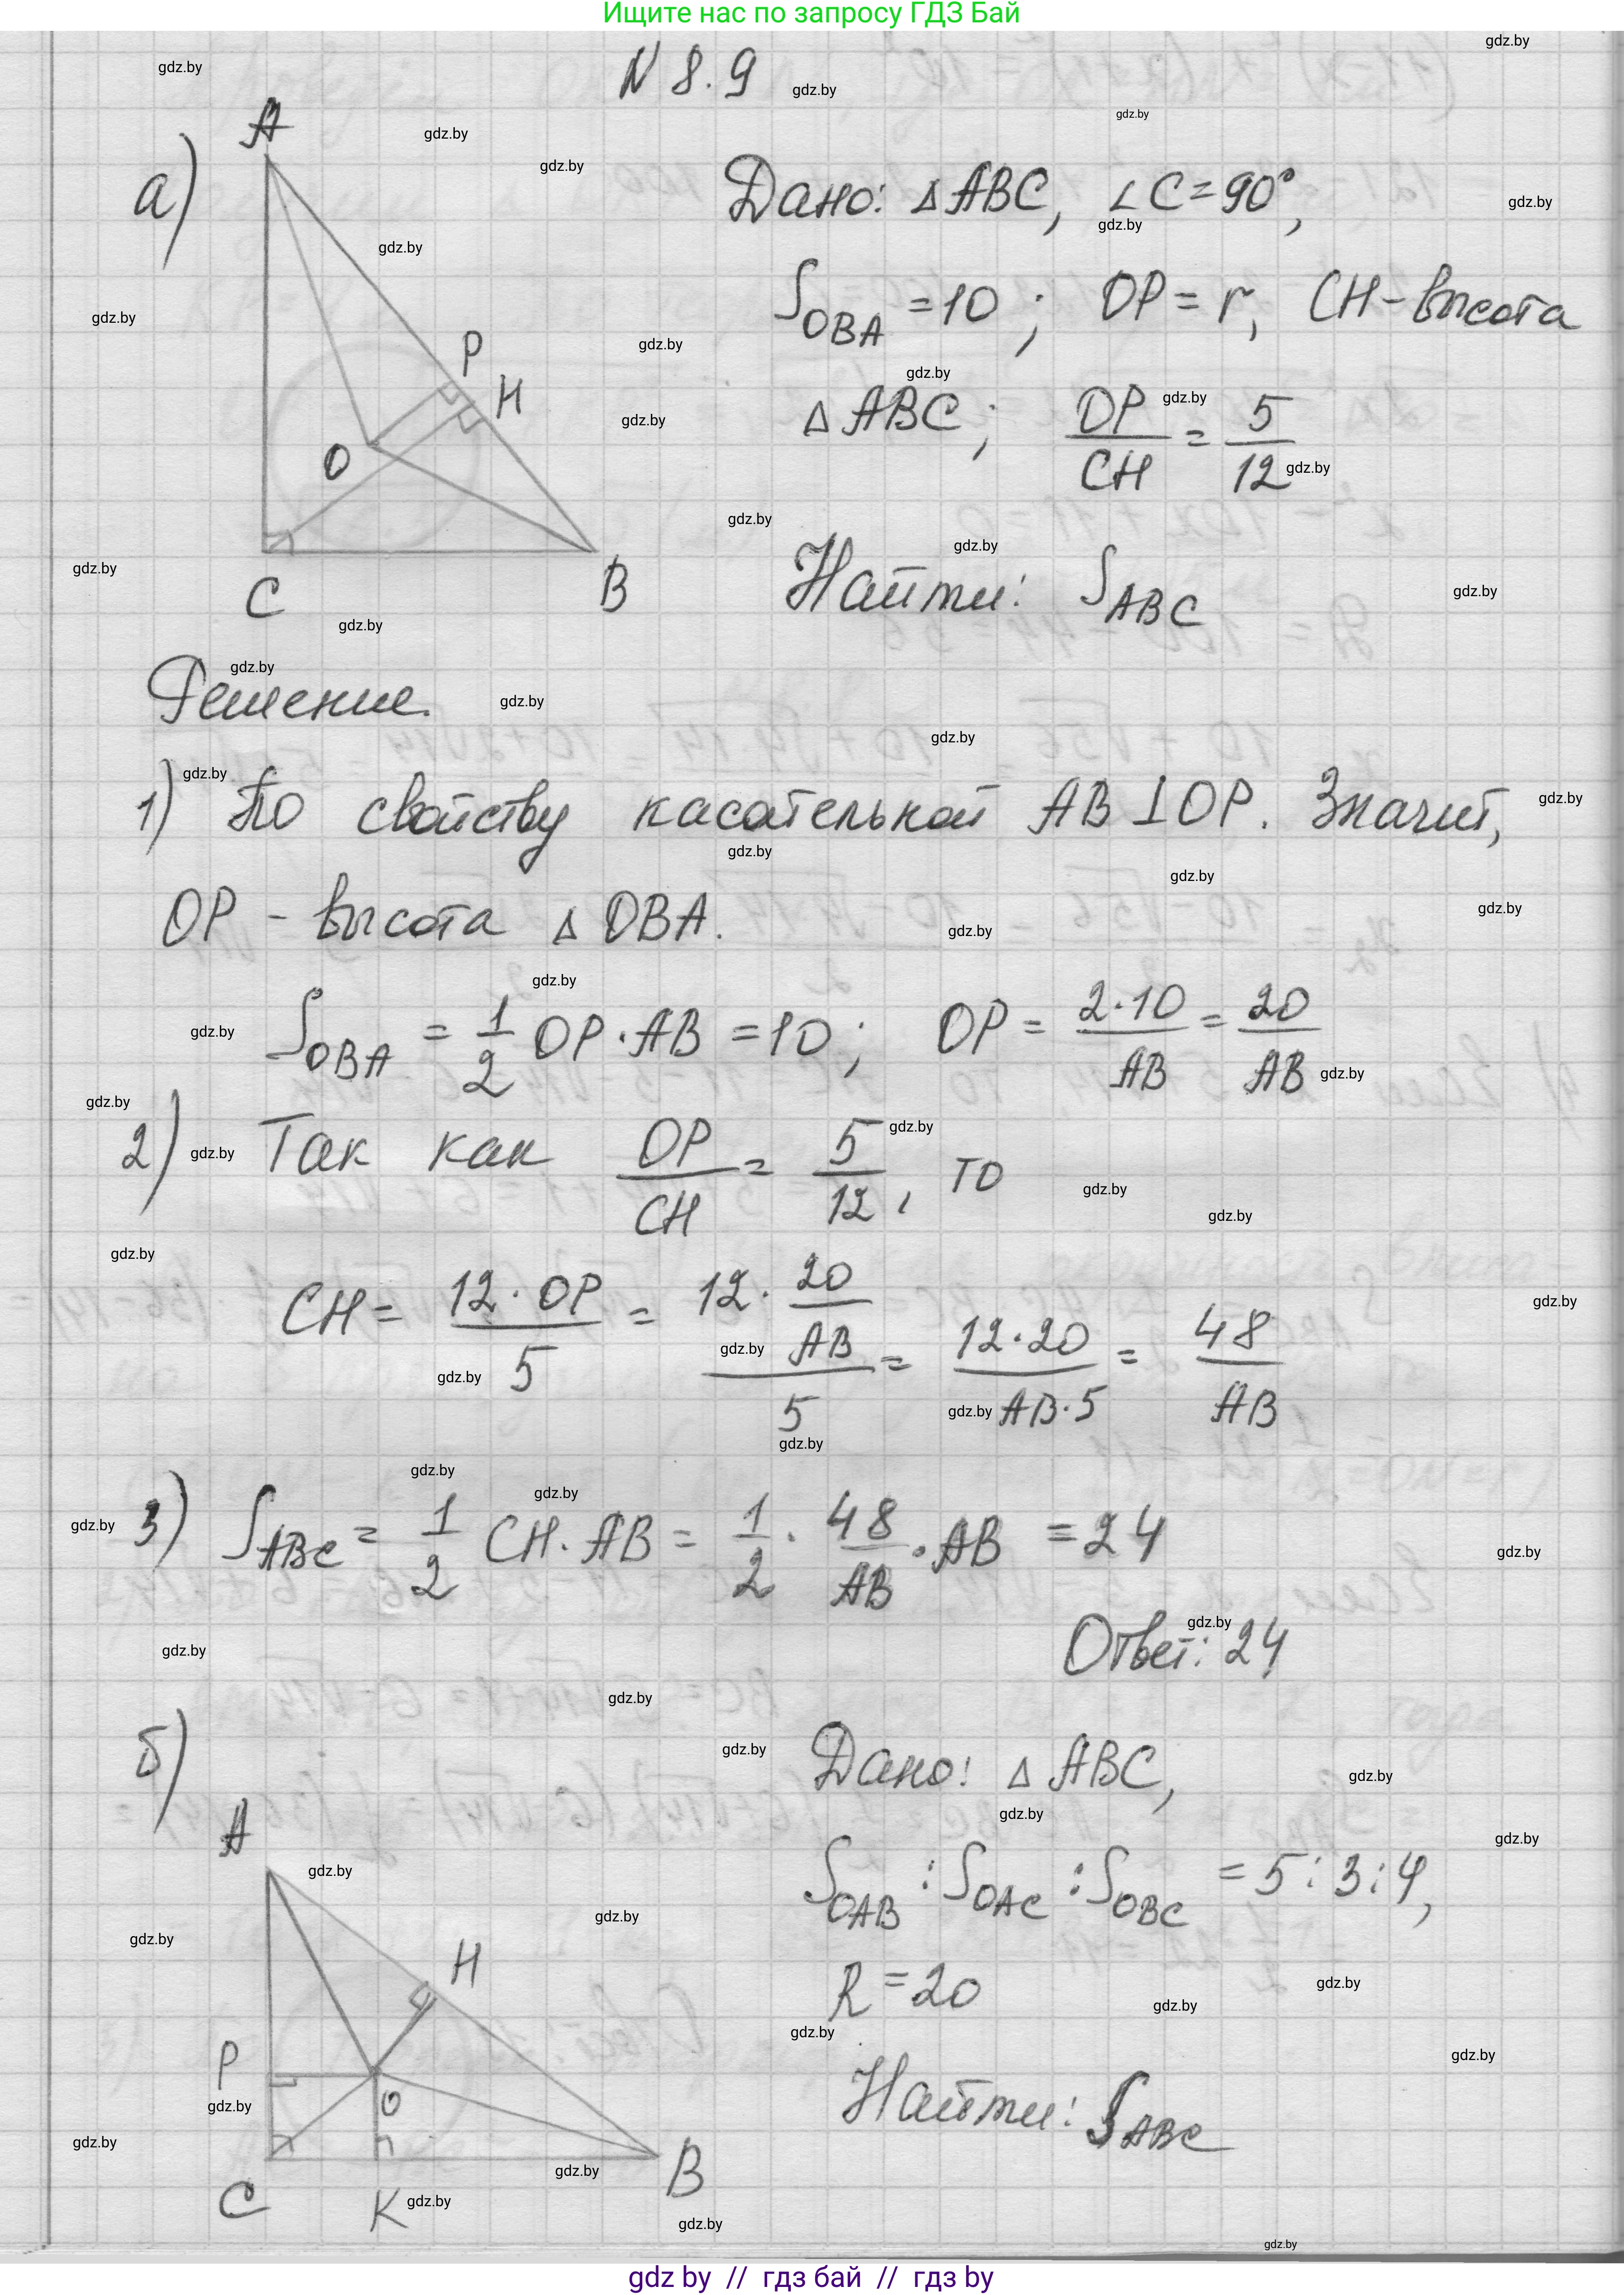 Ищите нас по запросу ГДЗ Бай
N 8.9
а)
A
P
H
O
C
B
Дано: △ABC, ∠C=90°,
S_OBA = 10 ; OP = r, CH - высота
△ABC ; OP/CH = 5/12
Найти: S_ABC
Решение.
1) По свойству касательной AB ⊥ OP. Значит,
OP - высота △OBA.
S_OBA = 1/2 OP · AB = 10 ; OP = 2·10/AB = 20/AB
2) Так как OP/CH = 5/12, то
CH = 12 · OP/5 = 12 · 20/AB/5 = 12·20/AB·5 = 48/AB
3) S_ABC = 1/2 CH · AB = 1/2 · 48/AB · AB = 24
Ответ: 24
б)
A
H
P
O
C
K
B
Дано: △ABC,
S_OAB : S_OAC : S_OBC = 5 : 3 : 4,
R = 20
Найти: S_ABC
gdz by // гдз бай // гдз by